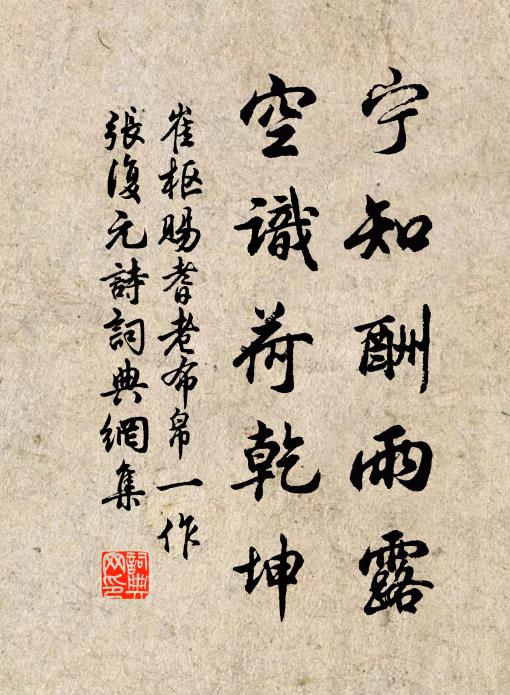 宁知酬雨露
空識荷乾坤
崔枢賜耆老布帛一作
張復元詩詞典網集
詞典网印